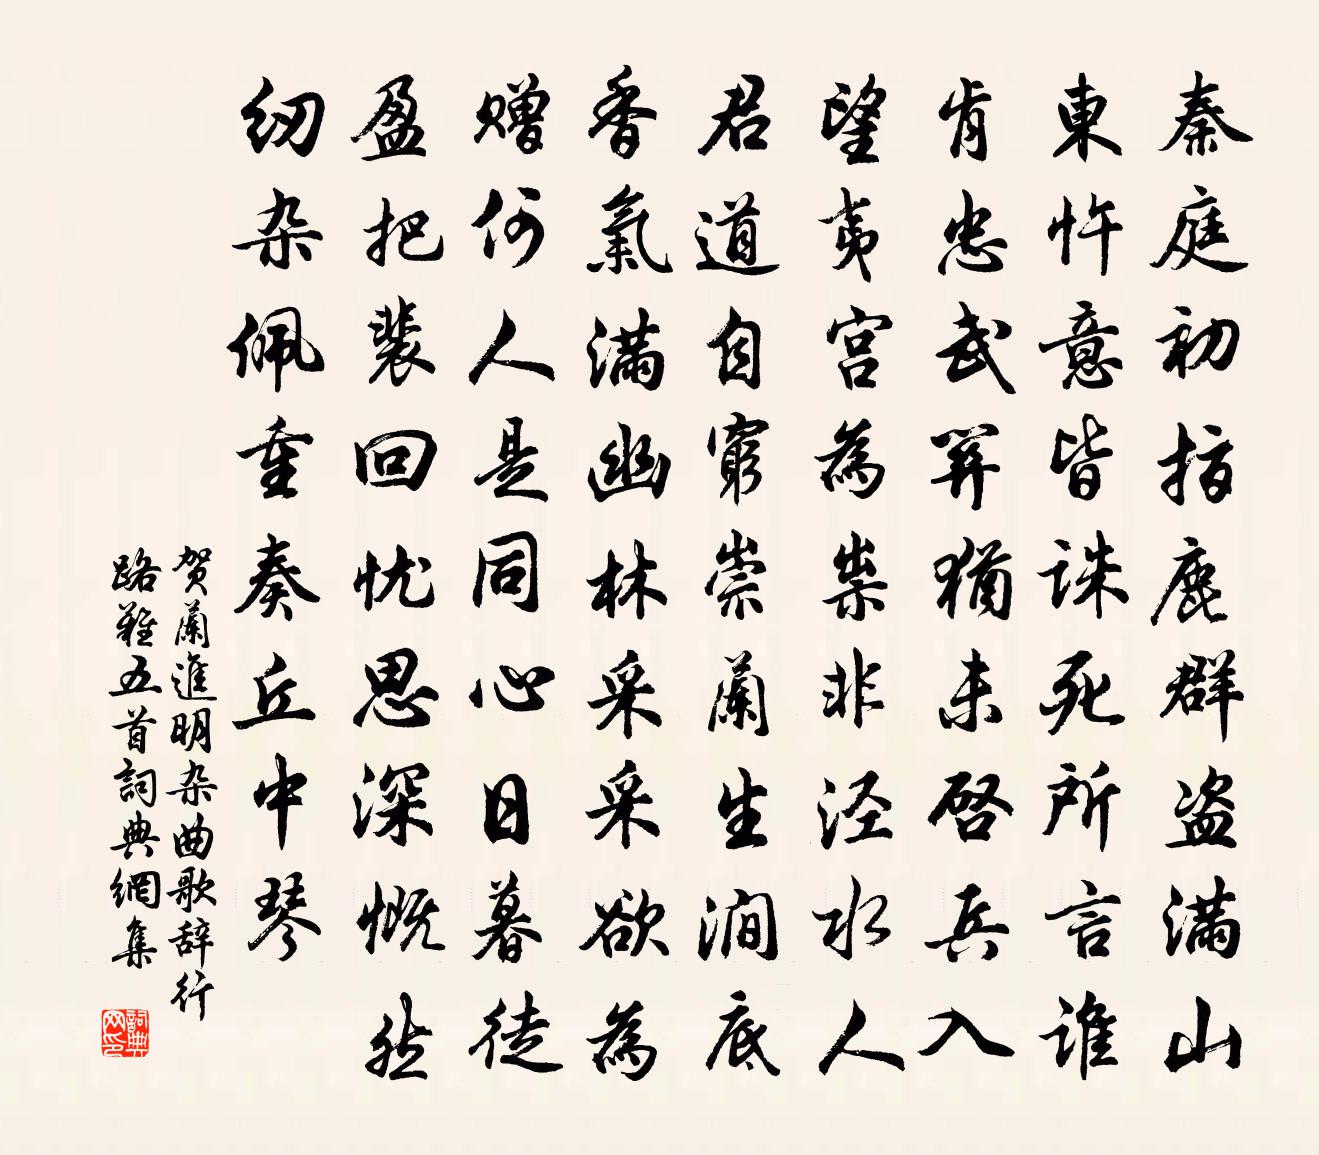 秦庭初指鹿群盗满山
東忤意皆诛死所言谁
肯忠武関猶未啓兵入
望夷宫為祟非泾水人
君道自窮崇蘭生澗底
香氣满幽林采采欲為
赠何人是同心日暮徒
盈把裴回忧思深慨然
纫杂佩重奏丘中琴
贺蘭進明杂曲歌辞行
路難五首詞典網集
詞典
网印